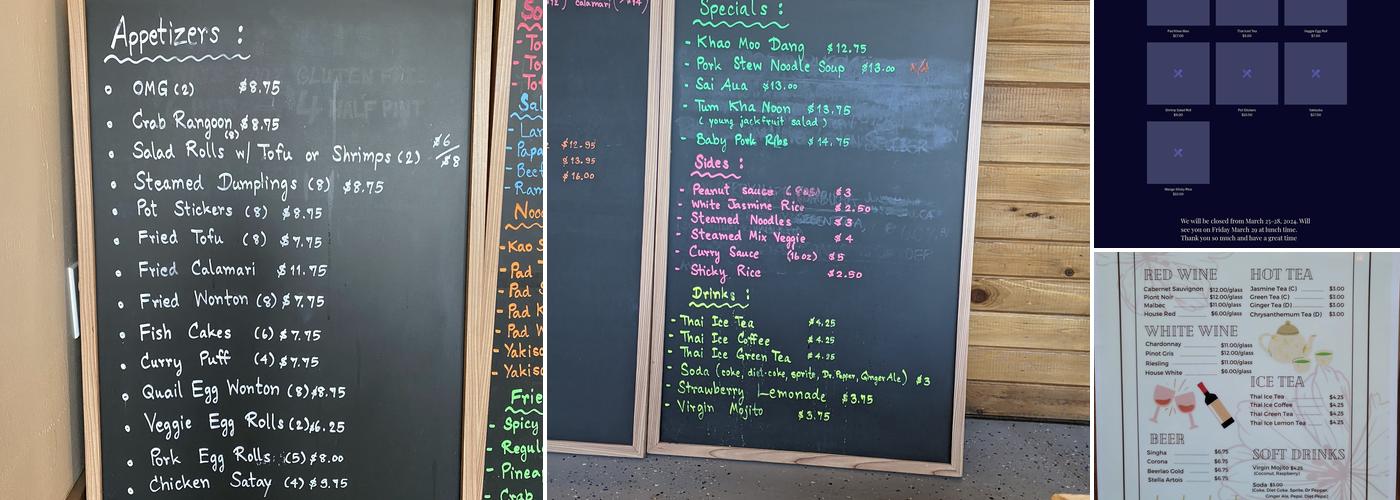 Appetizers :
OMG (2) $8.75
Crab Rangoon (8) $8.75
Salad Rolls w/ Tofu or Shrimps (2) $6/$8
Steamed Dumplings (8) $8.75
Pot Stickers (8) $8.75
Fried Tofu (8) $7.75
Fried Calamari $11.75
Fried Wonton (8) $7.75
Fish Cakes (6) $7.75
Curry Puff (4) $7.75
Quail Egg Wonton (8) $8.75
Veggie Egg Rolls (2) $6.25
Pork Egg Rolls (5) $8.00
Chicken Satay (4) $9.95
GLUTEN
4 HALF PINT
So
- To
- To
- Tof
Sal
- Lar
- Papa
- Beef
- Ram
Noo
- Kao S
- Pad
- Pad S
- Pad K
- Pad W
- Yakiso
- Yakiso
Frie
- Spicy
- Regul
- Pinea
- Crab
calamari
$12.95
$13.95
$16.00
Specials :
- Khao Moo Dang $12.75
- Pork Stew Noodle Soup $13.00
- Sai Aua $13.00
- Tum Kha Noon $13.75
( young jackfruit salad )
- Baby Pork Ribs $14.75
Sides :
- Peanut sauce $3
- White Jasmine Rice $2.50
- Steamed Noodles $3
- Steamed Mix Veggie $4
- Curry Sauce (16oz) $5
- Sticky Rice $2.50
Drinks :
- Thai Ice Tea $4.25
- Thai Ice Coffee $4.25
- Thai Ice Green Tea $4.25
- Soda (coke, diet-coke, sprite, Dr. Pepper, Ginger Ale) $3
- Strawberry Lemonade $3.75
- Virgin Mojito $3.75
Pad Khee Mao
Thai Iced Tea
Veggie Egg Roll
Shrimp Salad Roll
Pot Stickers
Yakisoba
Mango Sticky Rice
We will be closed from March 25-28, 2024. Will
see you on Friday March 29 at lunch time.
Thank you so much and have a great time
RED WINE
Cabernet Sauvignon $12.00/glass
Piont Noir $12.00/glass
Malbec $11.00/glass
House Red $6.00/glass
WHITE WINE
Chardonnay $11.00/glass
Pinot Gris $12.00/glass
Riesling $11.00/glass
House White $6.00/glass
BEER
Singha $6.75
Corona $6.75
Beerlao Gold $6.75
Stella Artois $6.75
HOT TEA
Jasmine Tea (C) $3.00
Green Tea (C) $3.00
Ginger Tea (D) $3.00
Chrysanthemum Tea (D) $3.00
ICE TEA
Thai Ice Tea $4.25
Thai Ice Coffee $4.25
Thai Green Tea $4.25
Thai Ice Lemon Tea $4.25
SOFT DRINKS
Virgin Mojito $4.25
(Coconut, Raspberry)
Soda $3.00
(Coke, Diet Coke, Sprite, Dr Pepper,
Ginger Ale, Pepsi, Diet Pepsi)